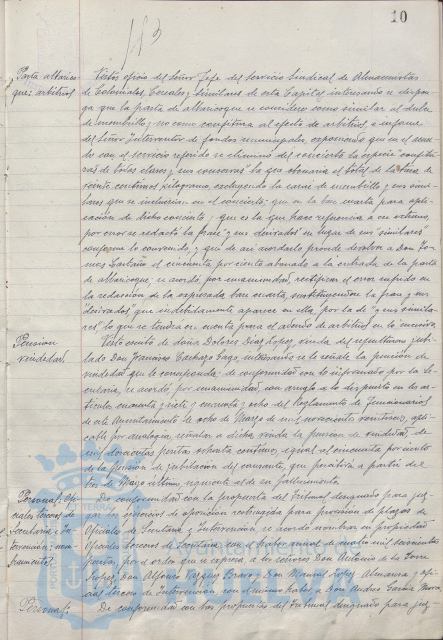 10
183
Pasta albarico-
que: arbitrios
Visto oficio del Señor Jefe del Servicio Sindical de Almacenistas
de Coloniales, Cereales y similares de esta Capital interesando se dispon-
ga que la pasta de albaricoque se considere como similar al dulce
de membrillo y no como confitura al efecto de arbitrios, e informe
del Señor Interventor de fondos municipales, exponiendo que en el acuer-
do con el servicio referido se eliminó del concierto la especie "confitu-
ras de todas clases y sus conservas" la que abonaría el total de la tasa de
veinte céntimos kilogramo, excluyendo la carne de membrillo y sus simi-
lares que se incluirían en el concierto; que en la base cuarta para apli-
cación de dicho concierto, y que es la que hace referencia a su extremo,
por error se redactó la frase "y sus derivados" en lugar de sus "similares"
conforme lo convenido, y que de así acordarlo procede devolver a Don
el cincuenta por ciento abonado a la entrada de la pasta
de albaricoque; se acordó, por unanimidad, rectificar el error sufrido en
la redacción de la expresada base cuarta, sustituyendose la frase y sus
"derivados" que indebidamente aparece en ella, por la de "y sus simila-
res" lo que se tendrá en cuenta para el adeudo de arbitrios en lo sucesivo.
Pensión
viudedad
Visto escrito de doña Dolores Díaz López, viuda del jubi-
lado Don Francisco Gago, interesando se le señale la pensión de
viudedad que le corresponda; de conformidad con lo informado por la Se-
cretaría, se acordó, por unanimidad, con arreglo a lo dispuesto en los ar-
tículos cincuenta y siete y cincuenta y ocho del Reglamento de funcionarios
de este Ayuntamiento de ocho de Marzo de mil novecientos veintinueve, apli-
cable por analogía, señalar a dicha viuda la pensión de viudedad de
mil doscientas pesetas ochenta céntimos, igual al cincuenta por ciento
de la pensión de jubilación del causante, que percibirá a partir del
tres de Mayo último, siguiente al de su fallecimiento.
Personal: Ofi-
ciales terceros de
Secretaría e In-
tervención; nom-
bramientos.
De conformidad con la propuesta del Tribunal designado para juz-
gar los ejercicios de oposición restringida para provisión de plazas de
Oficiales de Secretaría y Intervención, se acordó nombrar en propiedad
Oficiales terceros de Secretaría, con el haber anual de cinco mil trescientas
pesetas, por el orden que se expresa, a los señores Don Antonio de la Torre
López, Don Alfonso Vázquez Bravo y Don Manuel López Almansa y ofi-
ciales tercero de Intervención, con el mismo haber, a Don Andrés García Mora.
Personal:
De conformidad con las propuestas del Tribunal designado para juz-
Ayuntamiento